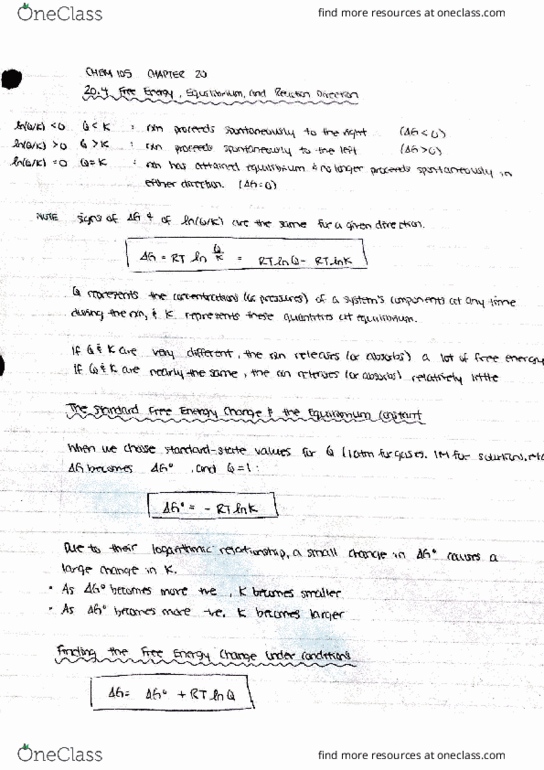 OneClass
find more resources at oneclass.com
CHEM 105 CHAPTER 20
20.4 Free Energy, Equilibrium, and Reaction Direction
ln(Q/K) < 0 Q < K : rxn proceeds spontaneously to the right (ΔG < 0)
ln(Q/K) > 0 Q > K : rxn proceeds spontaneously to the left (ΔG > 0)
ln(Q/K) = 0 Q = K : rxn has attained equilibrium & no longer proceeds spontaneously in
either direction. (ΔG = 0)
NOTE signs of ΔG & of ln(Q/K) are the same for a given direction.
ΔG = RT ln Q/K = RT ln Q - RT ln K
Q represents the concentrations (or pressures) of a system's components at any time
during the rxn, & K represents these quantities at equilibrium.
If Q & K are very different, the rxn releases (or absorbs) a lot of free energy
If Q & K are nearly the same, the rxn releases (or absorbs) relatively little
The Standard Free Energy Change & the Equilibrium Constant
When we choose standard-state values for Q (1atm for gases, 1M for solutions, etc
ΔG becomes ΔG°, and Q = 1:
ΔG° = - RT ln K
Due to their logarithmic relationship, a small change in ΔG° causes a
large change in K.
• As ΔG° becomes more +ve, K becomes smaller
• As ΔG° becomes more -ve, K becomes larger
Finding the Free Energy Change under conditions
ΔG = ΔG° + RT ln Q
OneClass
find more resources at oneclass.com